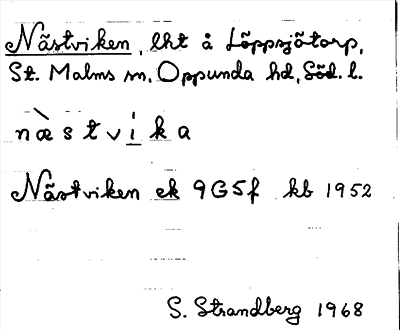 Nästviken, lht å Löppsjötorp,
St. Malms sn, Oppunda hd, Söd. l.
næ̀stvi̱ka
Nästviken ek 9G5f kb 1952
S. Strandberg 1968